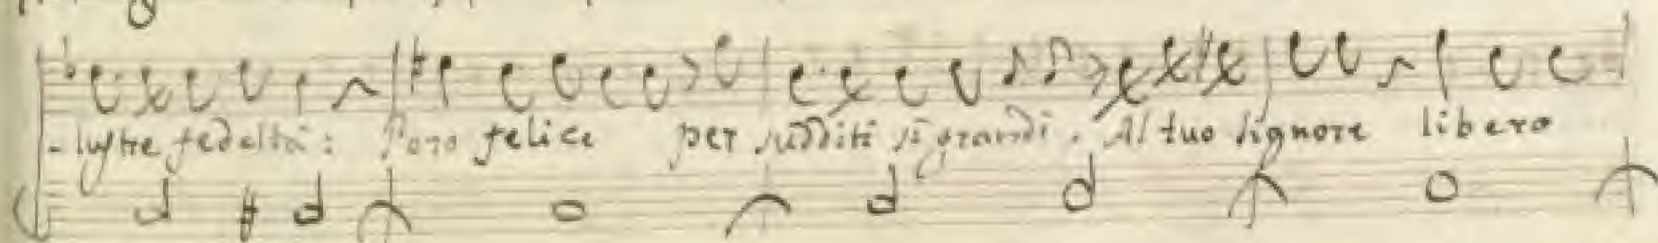 -lustre fedeltà: Poro felice per sudditi si grandi. Al tuo signore libero